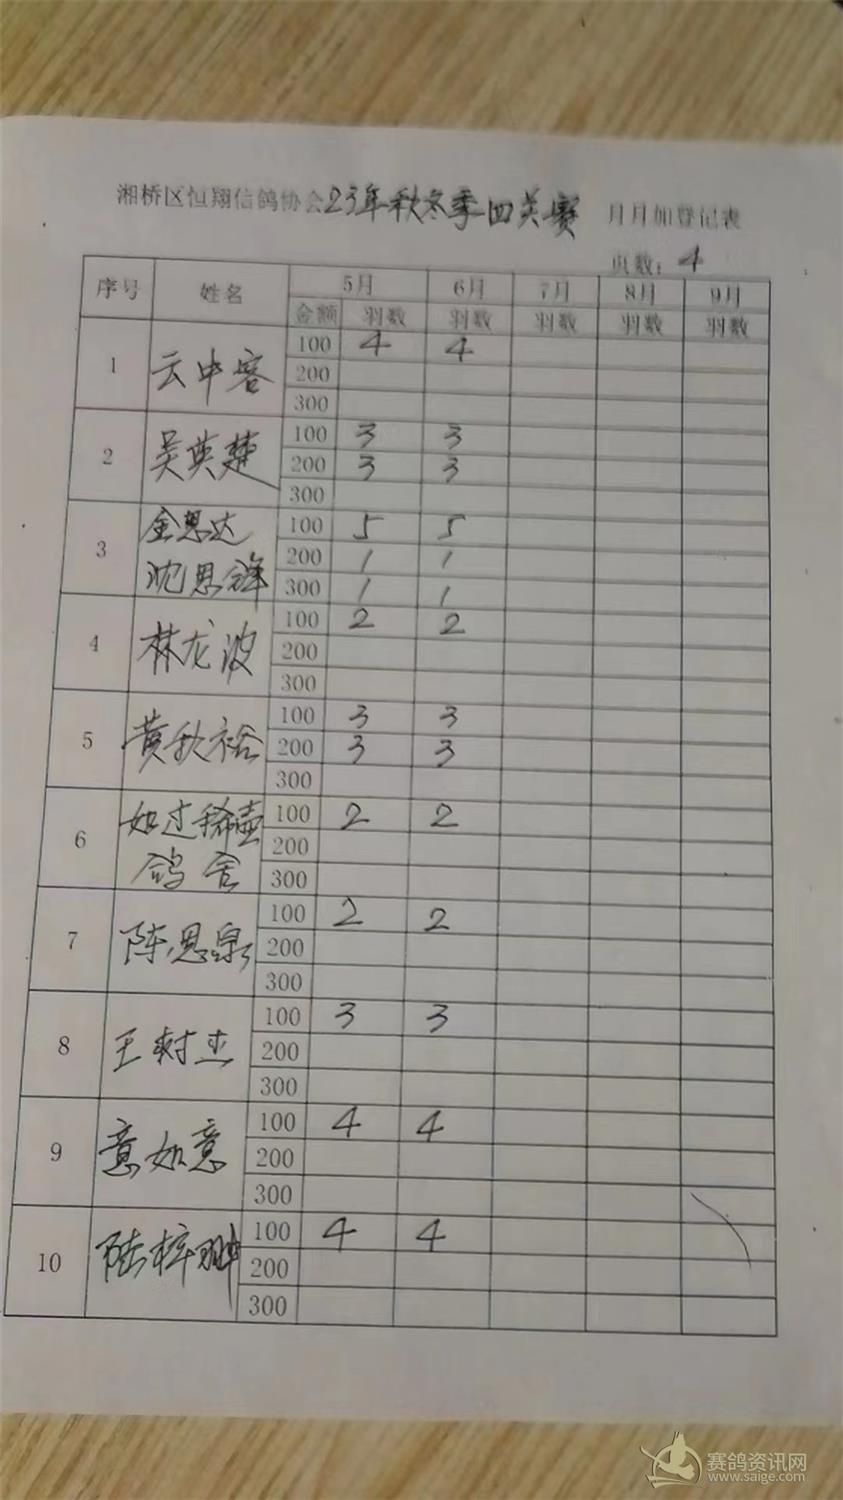 湘桥区恒翔信鸽协会23年秋冬季四关赛 月月加登记表
页数：4
序号 姓名 5月 6月 7月 8月 9月
金额 羽数 羽数 羽数 羽数 羽数
1 云中客 100 4 4
200
300
2 吴英楚 100 3 3
200 3 3
300
3 金思达 100 5 5
沈思锋 200 1 1
300 1 1
4 林龙波 100 2 2
200
300
5 黄秋裕 100 3 3
200 3 3
300
6 如过稀壶 100 2 2
鸽舍 200
300
7 陈思泉 100 2 2
200
300
8 王树杰 100 3 3
200
300
9 意如意 100 4 4
200
300
10 陆梓翀 100 4 4
200
300
赛鸽资讯网
www.saige.com